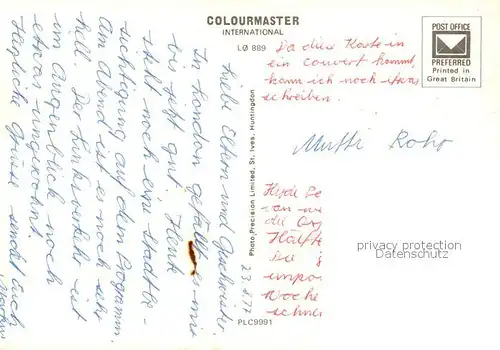 COLOURMASTER
INTERNATIONAL
LØ 889
POST OFFICE
PREFERRED
Printed in
Great Britain
Da diese Karte in
ein couvert kommt,
kann ich noch etwas
schreiben.
Mutti Rohr
Liebe Eltern und Geschwister.
In London gefällt es mir
bis jetzt gut. Heute
steht noch eine Stadtbe-
sichtigung auf dem Programm.
Am Abend ist es noch sehr
hell. Der Linksverkehr ist
im Augenblick noch
etwas ungewohnt.
Herzliche Grüsse sendet Euch
Markus
Photo Precision Limited, St. Ives, Huntingdon
Hyde
die
Hälfte
Woche
privacy protection
Datenschutz
PLC9991